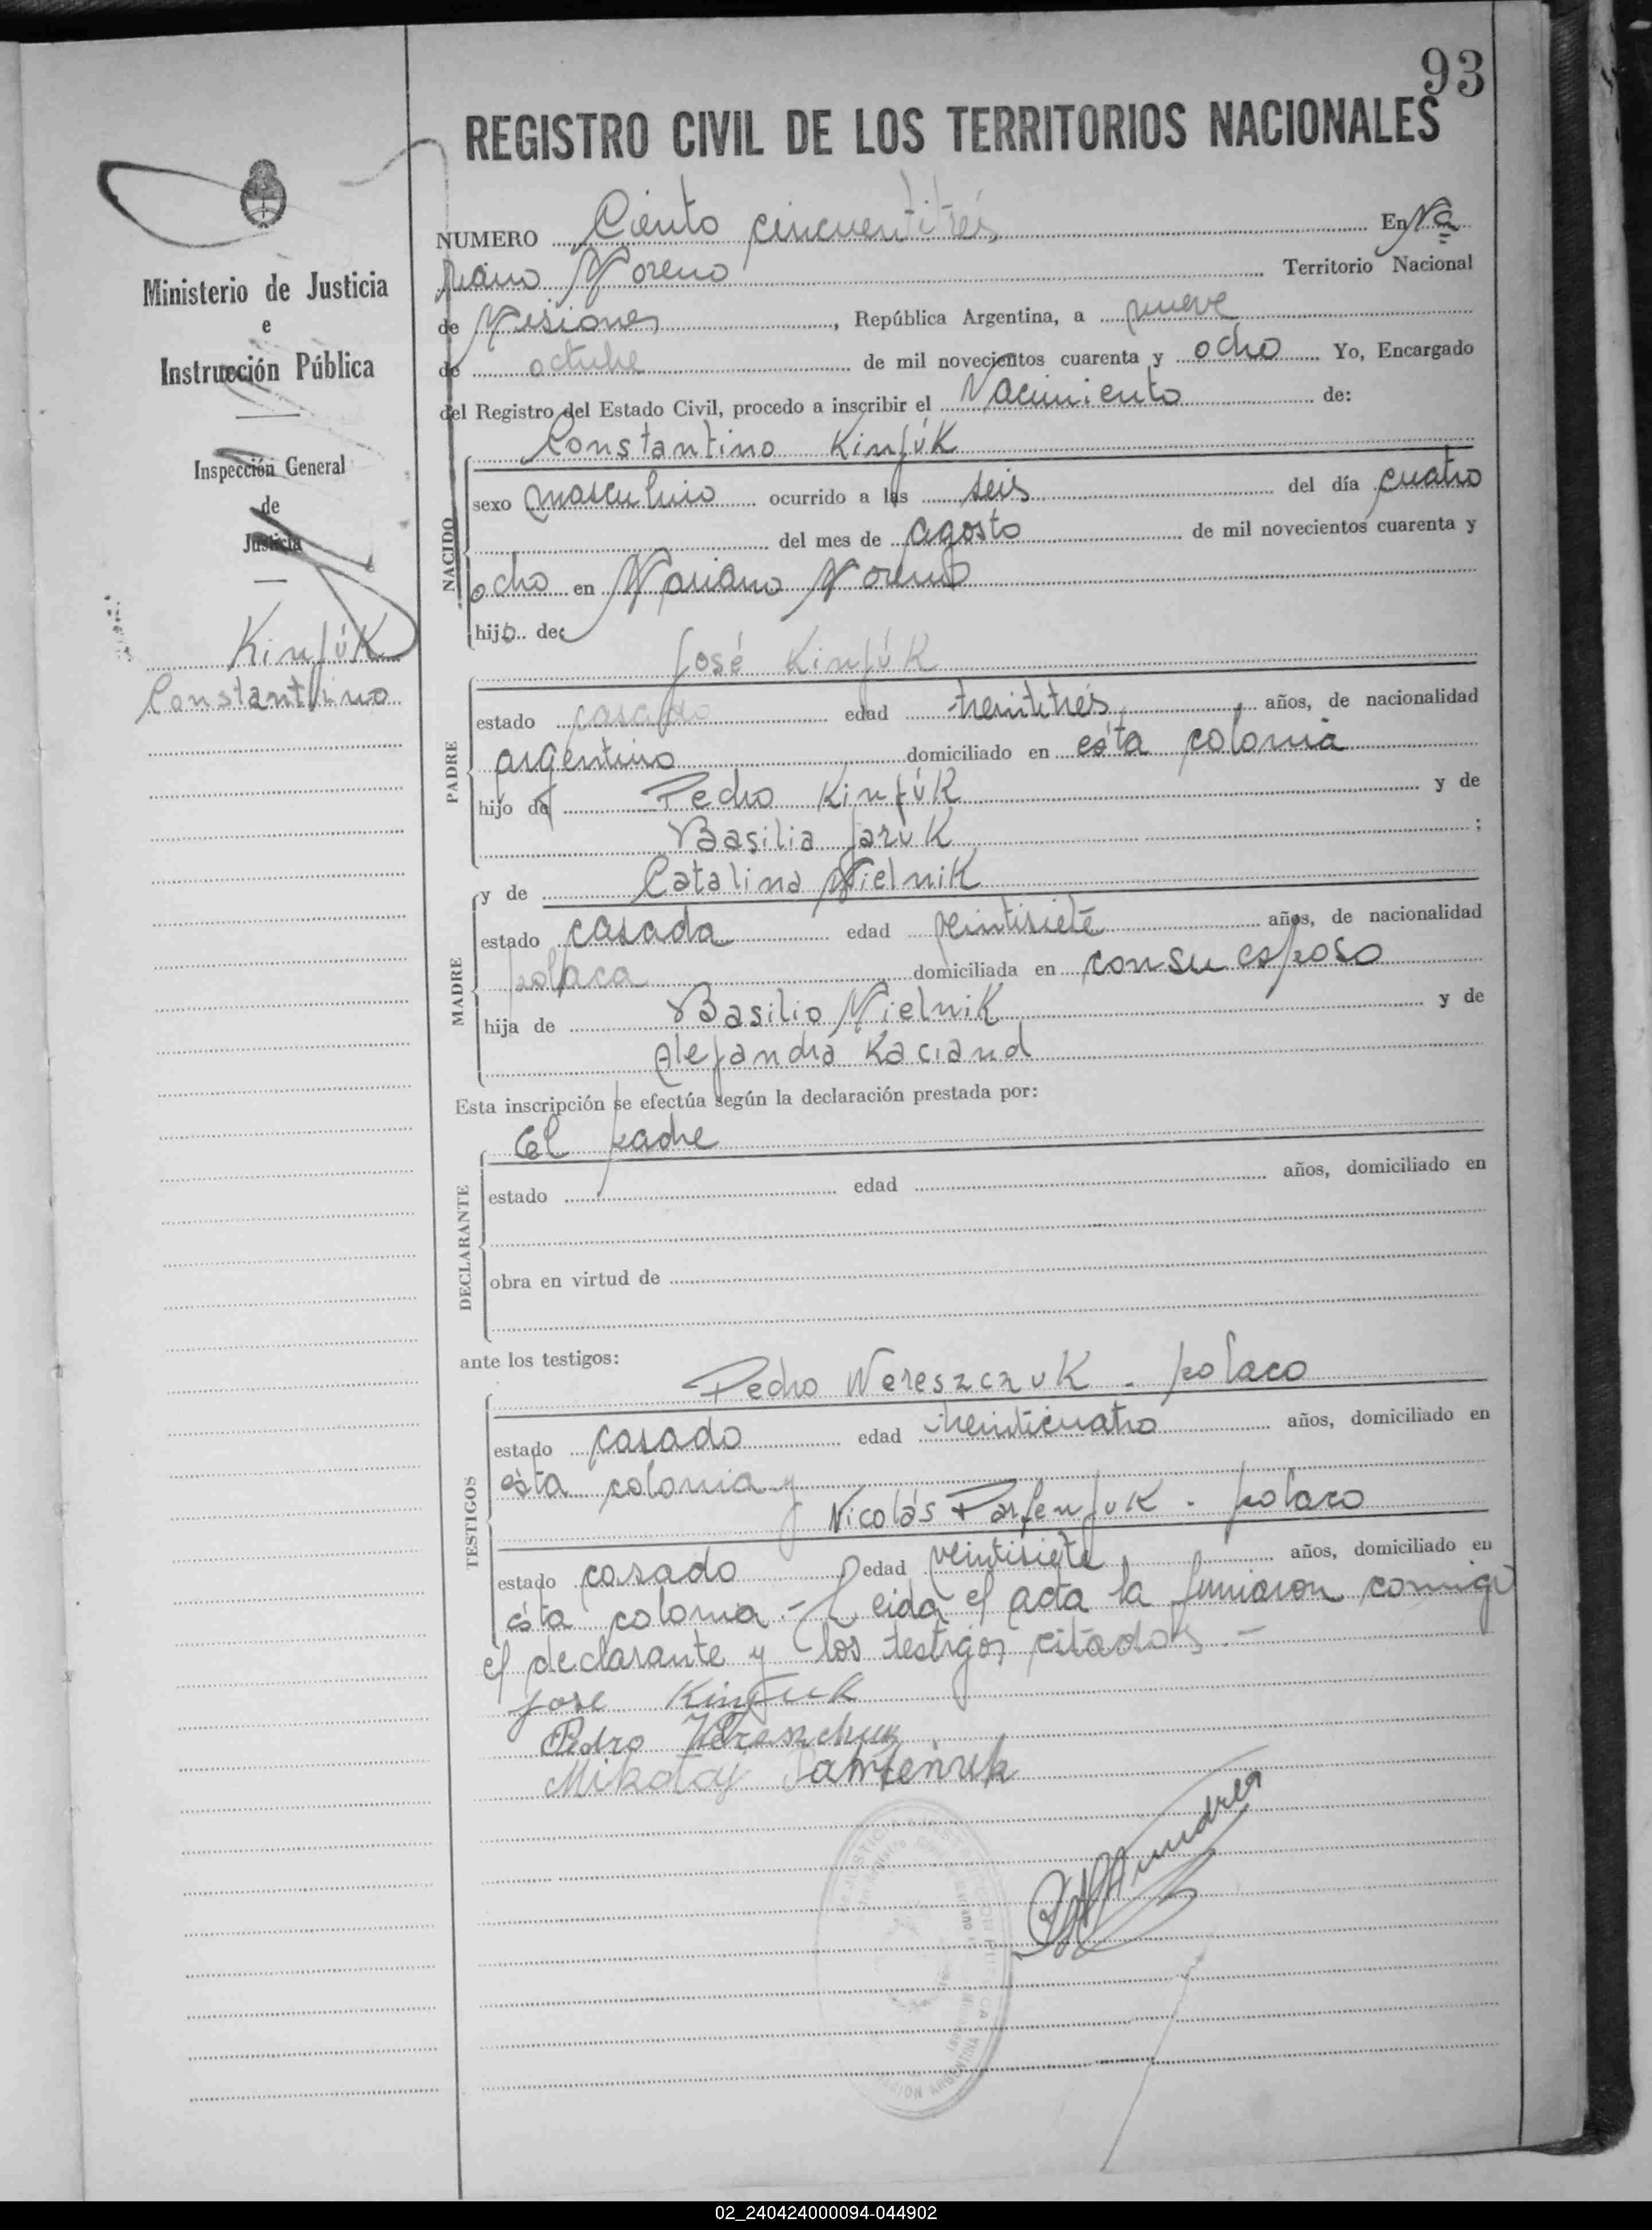 93
REGISTRO CIVIL DE LOS TERRITORIOS NACIONALES
Ministerio de Justicia
e
Instrucción Pública
Inspección General
de
Justicia
Kinfúk
Constantino
NUMERO Ciento cincuentitrés En Ma
riano Moreno Territorio Nacional
de Misiones, República Argentina, a nueve
de octubre de mil novecientos cuarenta y ocho Yo, Encargado
del Registro del Estado Civil, procedo a inscribir el Nacimiento de:
NACIDO
Constantino Kinfúk
sexo masculino ocurrido a las seis del día cuatro
del mes de agosto de mil novecientos cuarenta y
ocho en Mariano Moreno
hijo de:
PADRE
José Kinfúk
estado casado edad treintitrés años, de nacionalidad
argentino domiciliado en ésta colonia
hijo de Pedro Kinfúk y de
Basilia Jaruk ;
MADRE
y de Catalina Mielnik
estado casada edad veintisiete años, de nacionalidad
polaca domiciliada en con su esposo
hija de Basilio Mielnik y de
Alejandra Kaciand
Esta inscripción se efectúa según la declaración prestada por:
DECLARANTE
El padre
estado edad años, domiciliado en
obra en virtud de
ante los testigos:
TESTIGOS
Pedro Wereszczuk - polaco
estado casado edad treinticuatro años, domiciliado en
ésta colonia y
Nicolás Parfenjuk - polaco
estado casado edad veintisiete años, domiciliado en
ésta colonia.- Leida el acta la firmaron conmigo
el declarante y los testigos citados.-
Jose Kinfuk
Pedro Wereszchuk
Mikołaj Parfeniuk
02_240424000094-044902